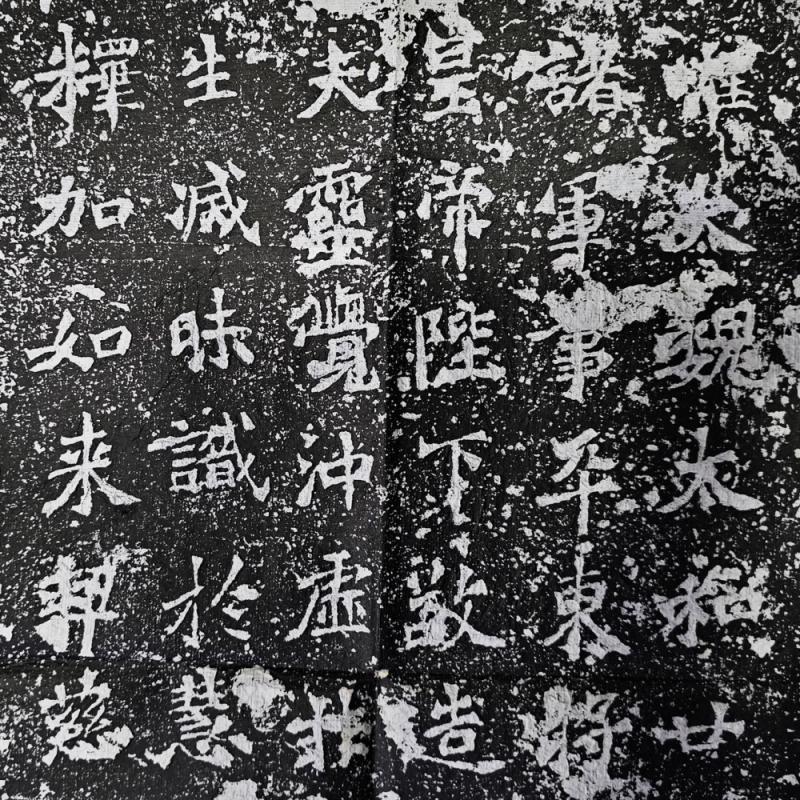 惟大魏太和廿
諸軍事平東將
皇帝陛下敬造
夫靈覺沖虛
生滅昧識於慧
釋加如来契慈